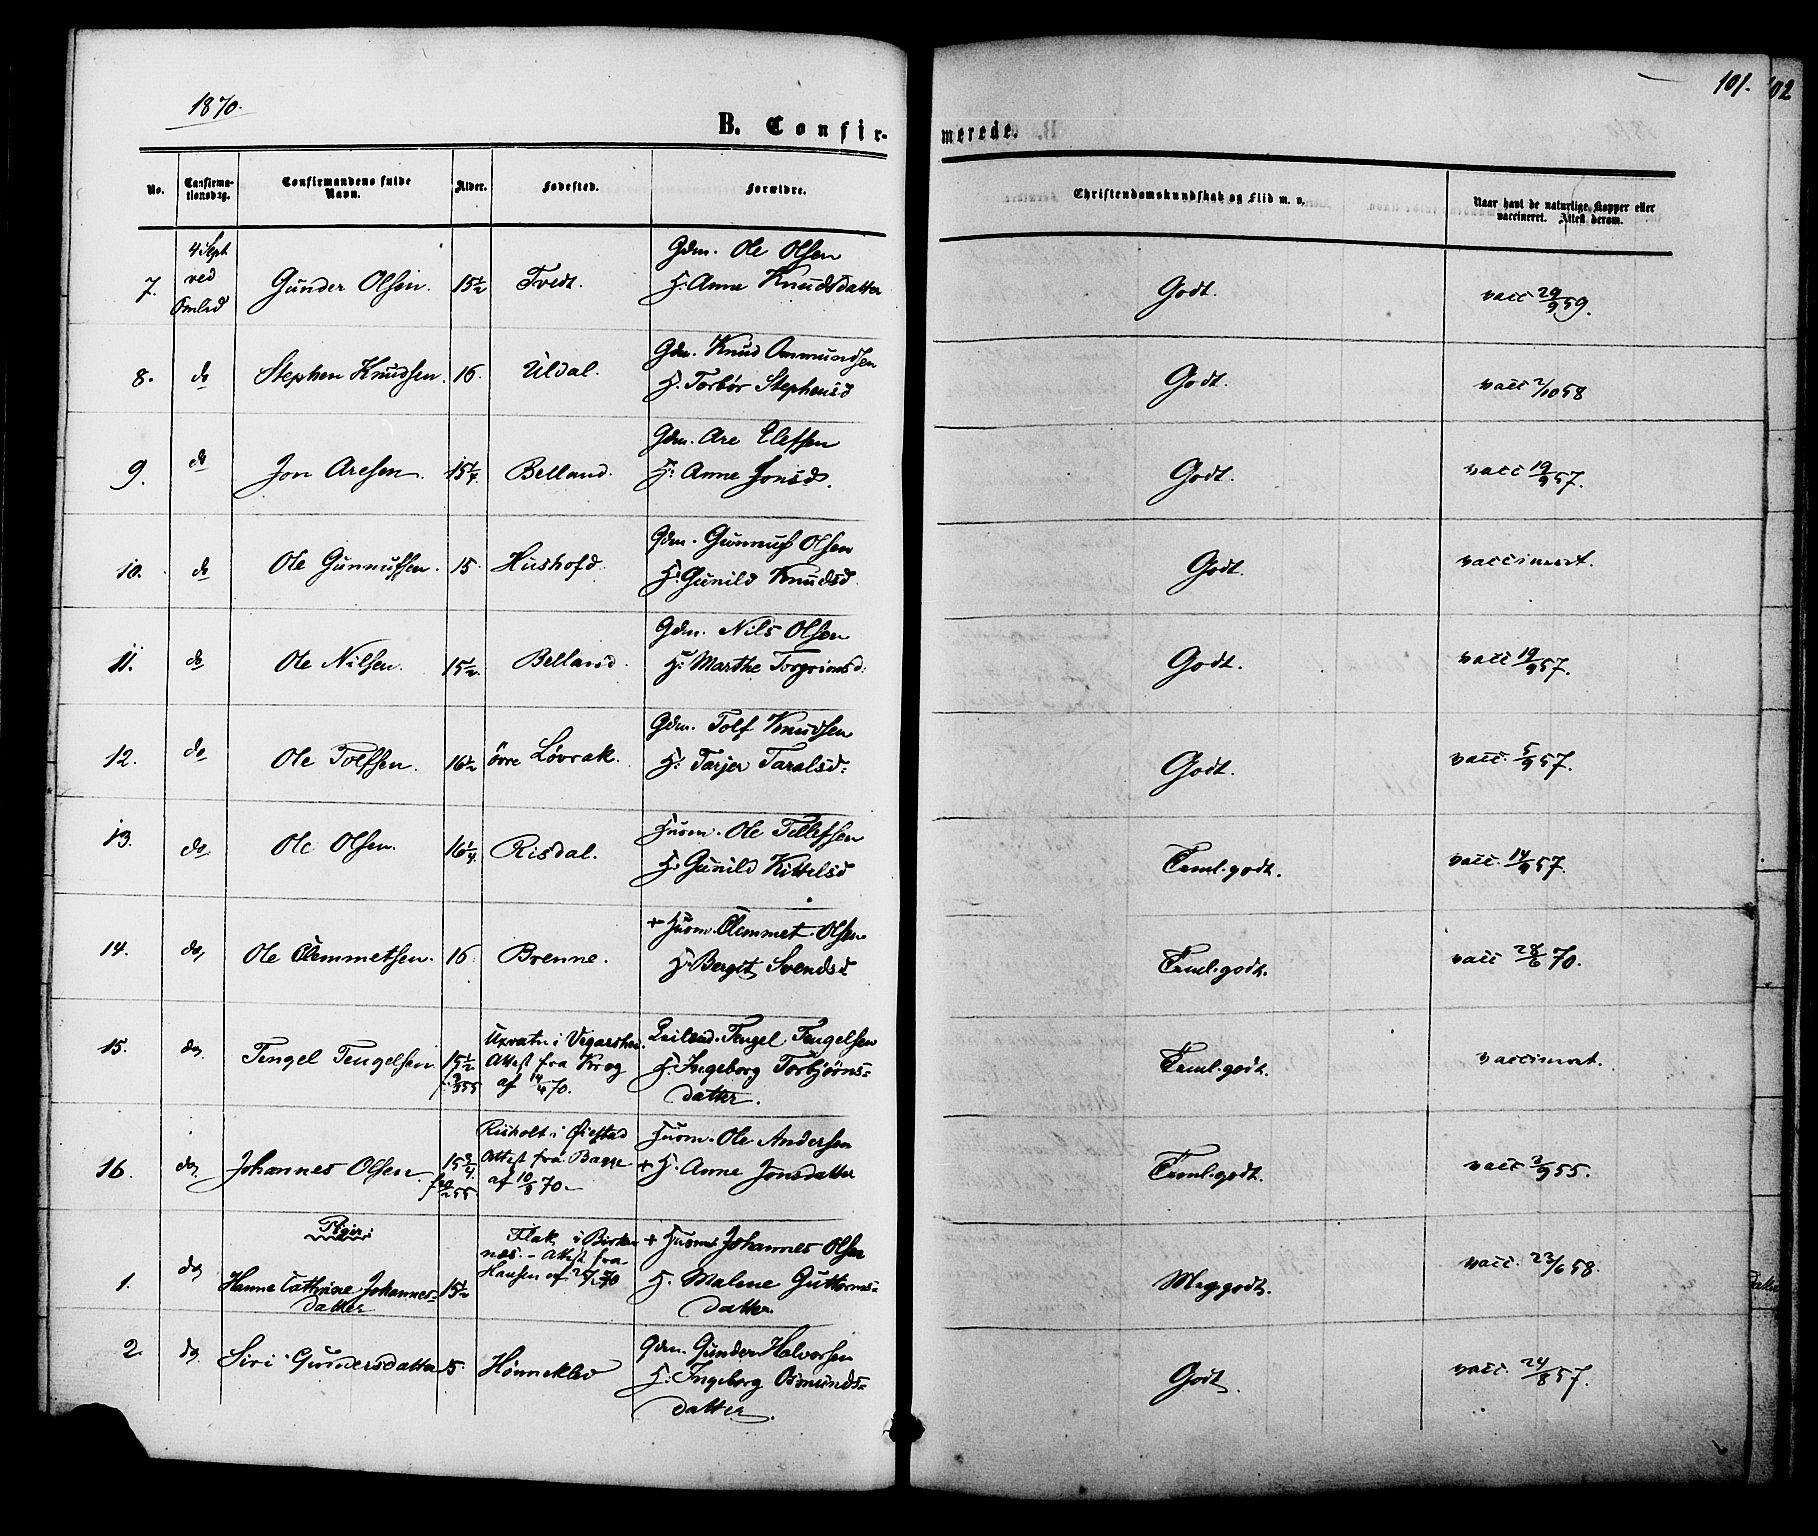 1870.
101.
102
B. Confir-
merede.
No.
Confirma-
tionsdag.
Confirmandens fulde
Navn.
Alder.
Fødested.
Forældre.
Christendomskundskab og Flid m. v.
Naar havt de naturlige Kopper eller
vaccineret. Attest derom.
7. 4 Sept ved Omlid Gunder Olsen. 15½ Tvedt. Gdm. Ole Olsen
H. Anne Knudsdatter Godt. vacc 29/9 59.
8. do Stephen Knudsen. 16. Uldal. Gdm. Knud Ommundsen
H. Torbør Stephensd Godt. vacc 2/10 58
9. do Jon Aresen. 15¼ Belland. Gdm. Are Elefsen
H. Anne Jonsd. Godt. vacc 19/9 57.
10. do Ole Gunnufsen. 15. Hushofd. Gdm. Gunnuf Olsen
H. Gunild Knudsd. Godt. vaccineret.
11. do Ole Nilsen. 15½ Belland. Gdm. Nils Olsen
H: Marthe Torgrimsd. Godt. vacc 19/9 57.
12. do Ole Tolfsen. 16½ övre Løvrak. Gdm. Tolf Knudsen
H: Tarjer Taralsd: Godt. vacc. 5/9 57.
13. do Ole Olsen. 16¼ Risdal. Husm. Ole Tellefsen
H. Gunild Kittelsd Teml. godt. vacc. 14/9 57.
14. do Ole Clemmetsen. 16 Brenne. + Husm. Clemmet Olsen
H. Bergit Svendsd Teml. godt. vacc 28/6 70.
15. do Tengel Tengelsen 15½ Uxvatn i Vegarshei. Leilænd. Tengel Tengelsen
Attest fra Krog H. Ingeborg Torbjørns-
af 14/4 70. datter. Teml. godt. vaccineret.
16. do Johannes Olsen 15¾ Risholt i Øiestad Husm. Ole Andersen
Attest fra Bagge + H. Anne Jonsdatter
af 10/8 70. Teml. godt. vacc 3/9 55.
Piger:
1. do Hanne Cathrine Johannes-
datter 15½ Flak i Birke-
nes. - Attest fra
Hansen af 70 + Husm Johannes Olsen
H. Malene Guttorms-
datter Meg. godt. vacc. 23/6 58.
2. do Siri Gundersdatter 15. Hønneklev Gdm. Gunder Halvorsen
H. Ingeborg Osmunds-
datter. Godt. vacc. 24/8 57.